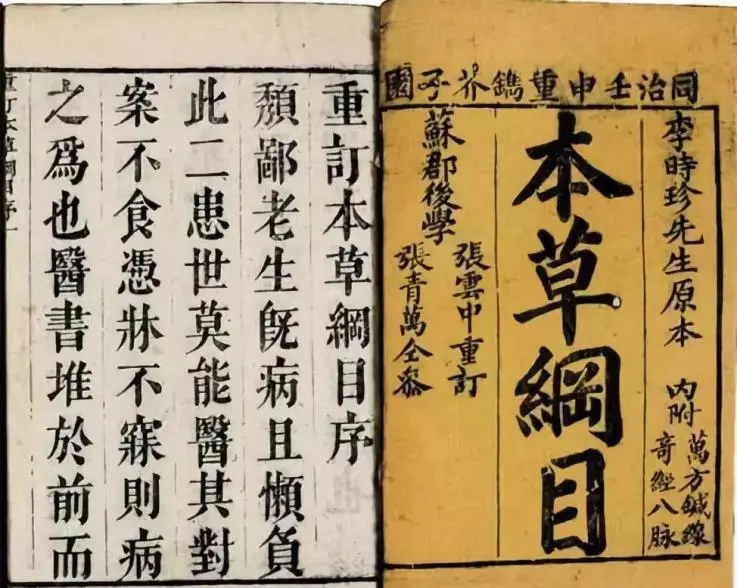 同治壬申重鐫芥子園
李時珍先生原本 內附
萬方鍼線
奇經八脉
本草綱目
張雲中重訂
蘇郡後學
張青萬仝叅
重訂本草綱目序
頽鄙老生旣病且懶負
此二患世莫能醫其對
案不食憑牀不寐則病
之爲也醫書堆於前而
重訂本草綱目序一